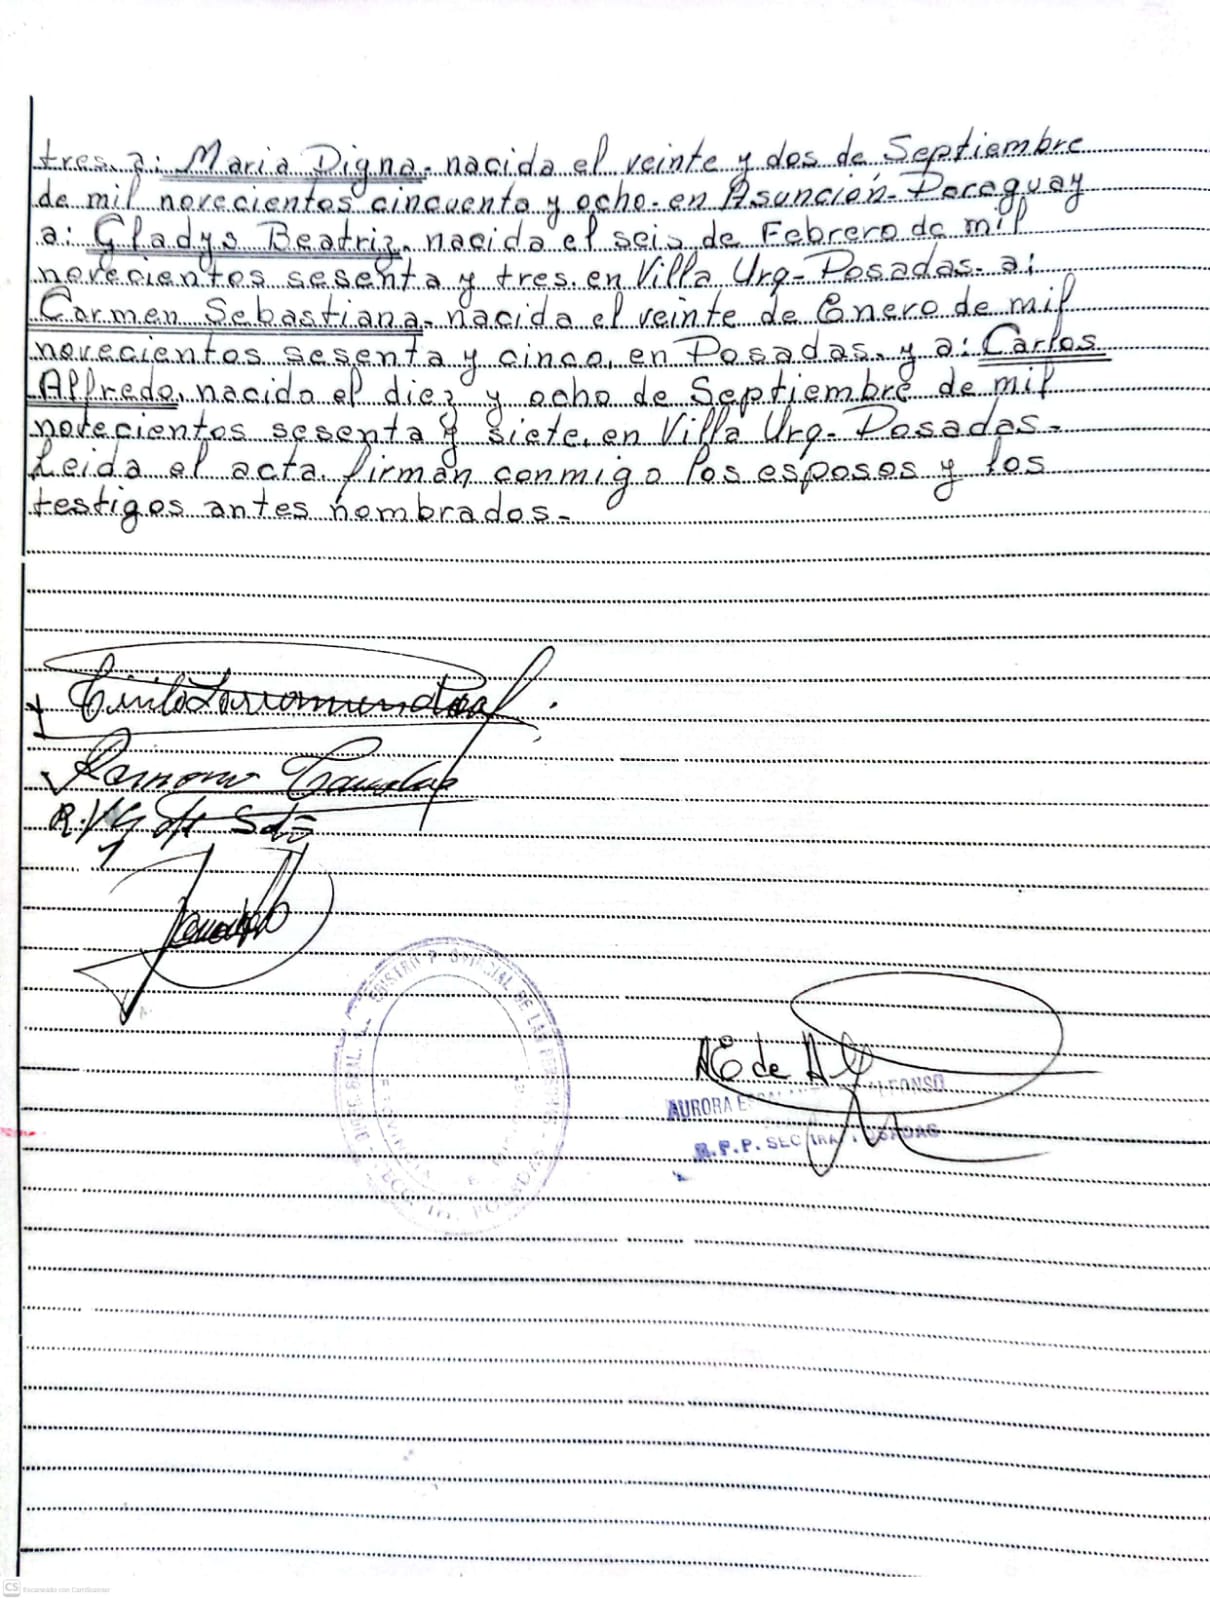 tres. a: Maria Digna. nacida el veinte y dos de Septiembre
de mil novecientos cincuenta y ocho. en Asunción. Paraguay
a: Gladys Beatriz. nacida el seis de Febrero de mil
novecientos sesenta y tres. en Villa Urq. Posadas. a:
Carmen Sebastiana. nacida el veinte de Enero de mil
novecientos sesenta y cinco, en Posadas. y a: Carlos
Alfredo, nacido el diez y ocho de Septiembre de mil
novecientos sesenta y siete. en Villa Urq. Posadas.
Leida el acta firman conmigo los esposos y los
testigos antes nombrados.
DE LAS
POSADAS
AE de Al
AURORA ALFONSO
R.P.P. SEC 1RA. POSADAS
CS Escaneado con CamScanner